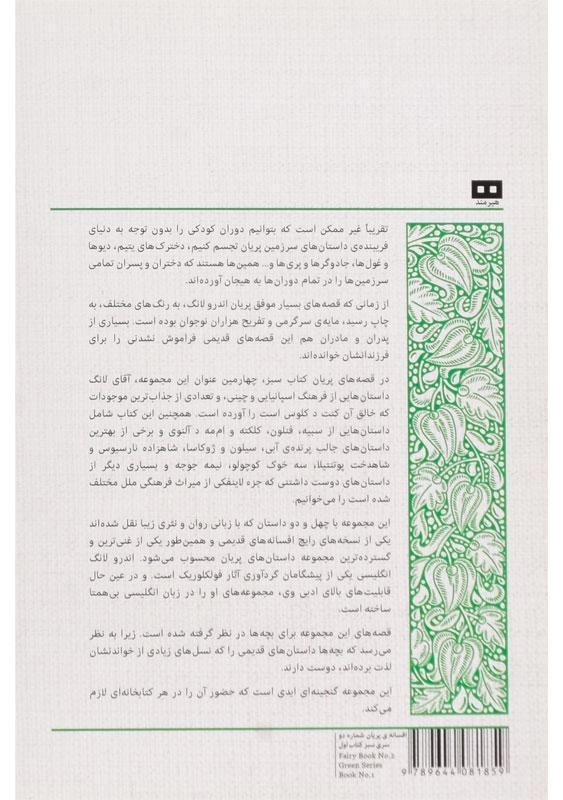 هیرمند
تقریباً غیر ممکن است که بتوانیم دوران کودکی را بدون توجه به دنیای
فریبنده‌ی داستان‌های سرزمین پریان تجسم کنیم، دخترک‌های یتیم، دیوها
و غول‌ها، جادوگرها و پری‌ها و... همین‌ها هستند که دختران و پسران تمامی
سرزمین‌ها را در تمام دوران‌ها به هیجان آورده‌اند.
از زمانی که قصه‌های بسیار موفق پریان اندرو لانگ، به رنگ‌های مختلف، به
چاپ رسید، مایه‌ی سرگرمی و تفریح هزاران نوجوان بوده است. بسیاری از
پدران و مادران هم این قصه‌های قدیمی فراموش نشدنی را برای
فرزندانشان خوانده‌اند.
در قصه‌های پریان کتاب سبز، چهارمین عنوان این مجموعه، آقای لانگ
داستان‌هایی از فرهنگ اسپانیایی و چینی، و تعدادی از جذاب‌ترین موجودات
که خالق آن کنت د کلوس است را آورده است. همچنین این کتاب شامل
داستان‌هایی از سبیه، فنلون، کلکته و ام‌مه د آلنوی و برخی از بهترین
داستان‌های جالب پرنده‌ی آبی، سیلون و ژوکاسا، شاهزاده نارسیوس و
شاهدخت پوتنتیلا، سه خوک کوچولو، نیمه جوجه و بسیاری دیگر از
داستان‌های دوست داشتنی که جزء لاینفکی از میراث فرهنگی ملل مختلف
شده است را می‌خوانیم.
این مجموعه با چهل و دو داستان که با زبانی روان و نثری زیبا نقل شده‌اند
یکی از نسخه‌های رایج افسانه‌های قدیمی و همین‌طور یکی از غنی‌ترین و
گسترده‌ترین مجموعه داستان‌های پریان محسوب می‌شود. اندرو لانگ
انگلیسی یکی از پیشگامان گردآوری آثار فولکلوریک است. و در عین حال
قابلیت‌های بالای ادبی وی، مجموعه‌های او را در زبان انگلیسی بی‌همتا
ساخته است.
قصه‌های این مجموعه برای بچه‌ها در نظر گرفته شده است. زیرا به نظر
می‌رسد که بچه‌ها داستان‌های قدیمی را که نسل‌های زیادی از خواندنشان
لذت برده‌اند، دوست دارند.
این مجموعه گنجینه‌ای ابدی است که حضور آن را در هر کتابخانه‌ای لازم
می‌کند.
افسانه ی پریان شماره دو
سری سبز کتاب اول
Fairy Book No.2
Green Series
Book No.1
9 789644 081859